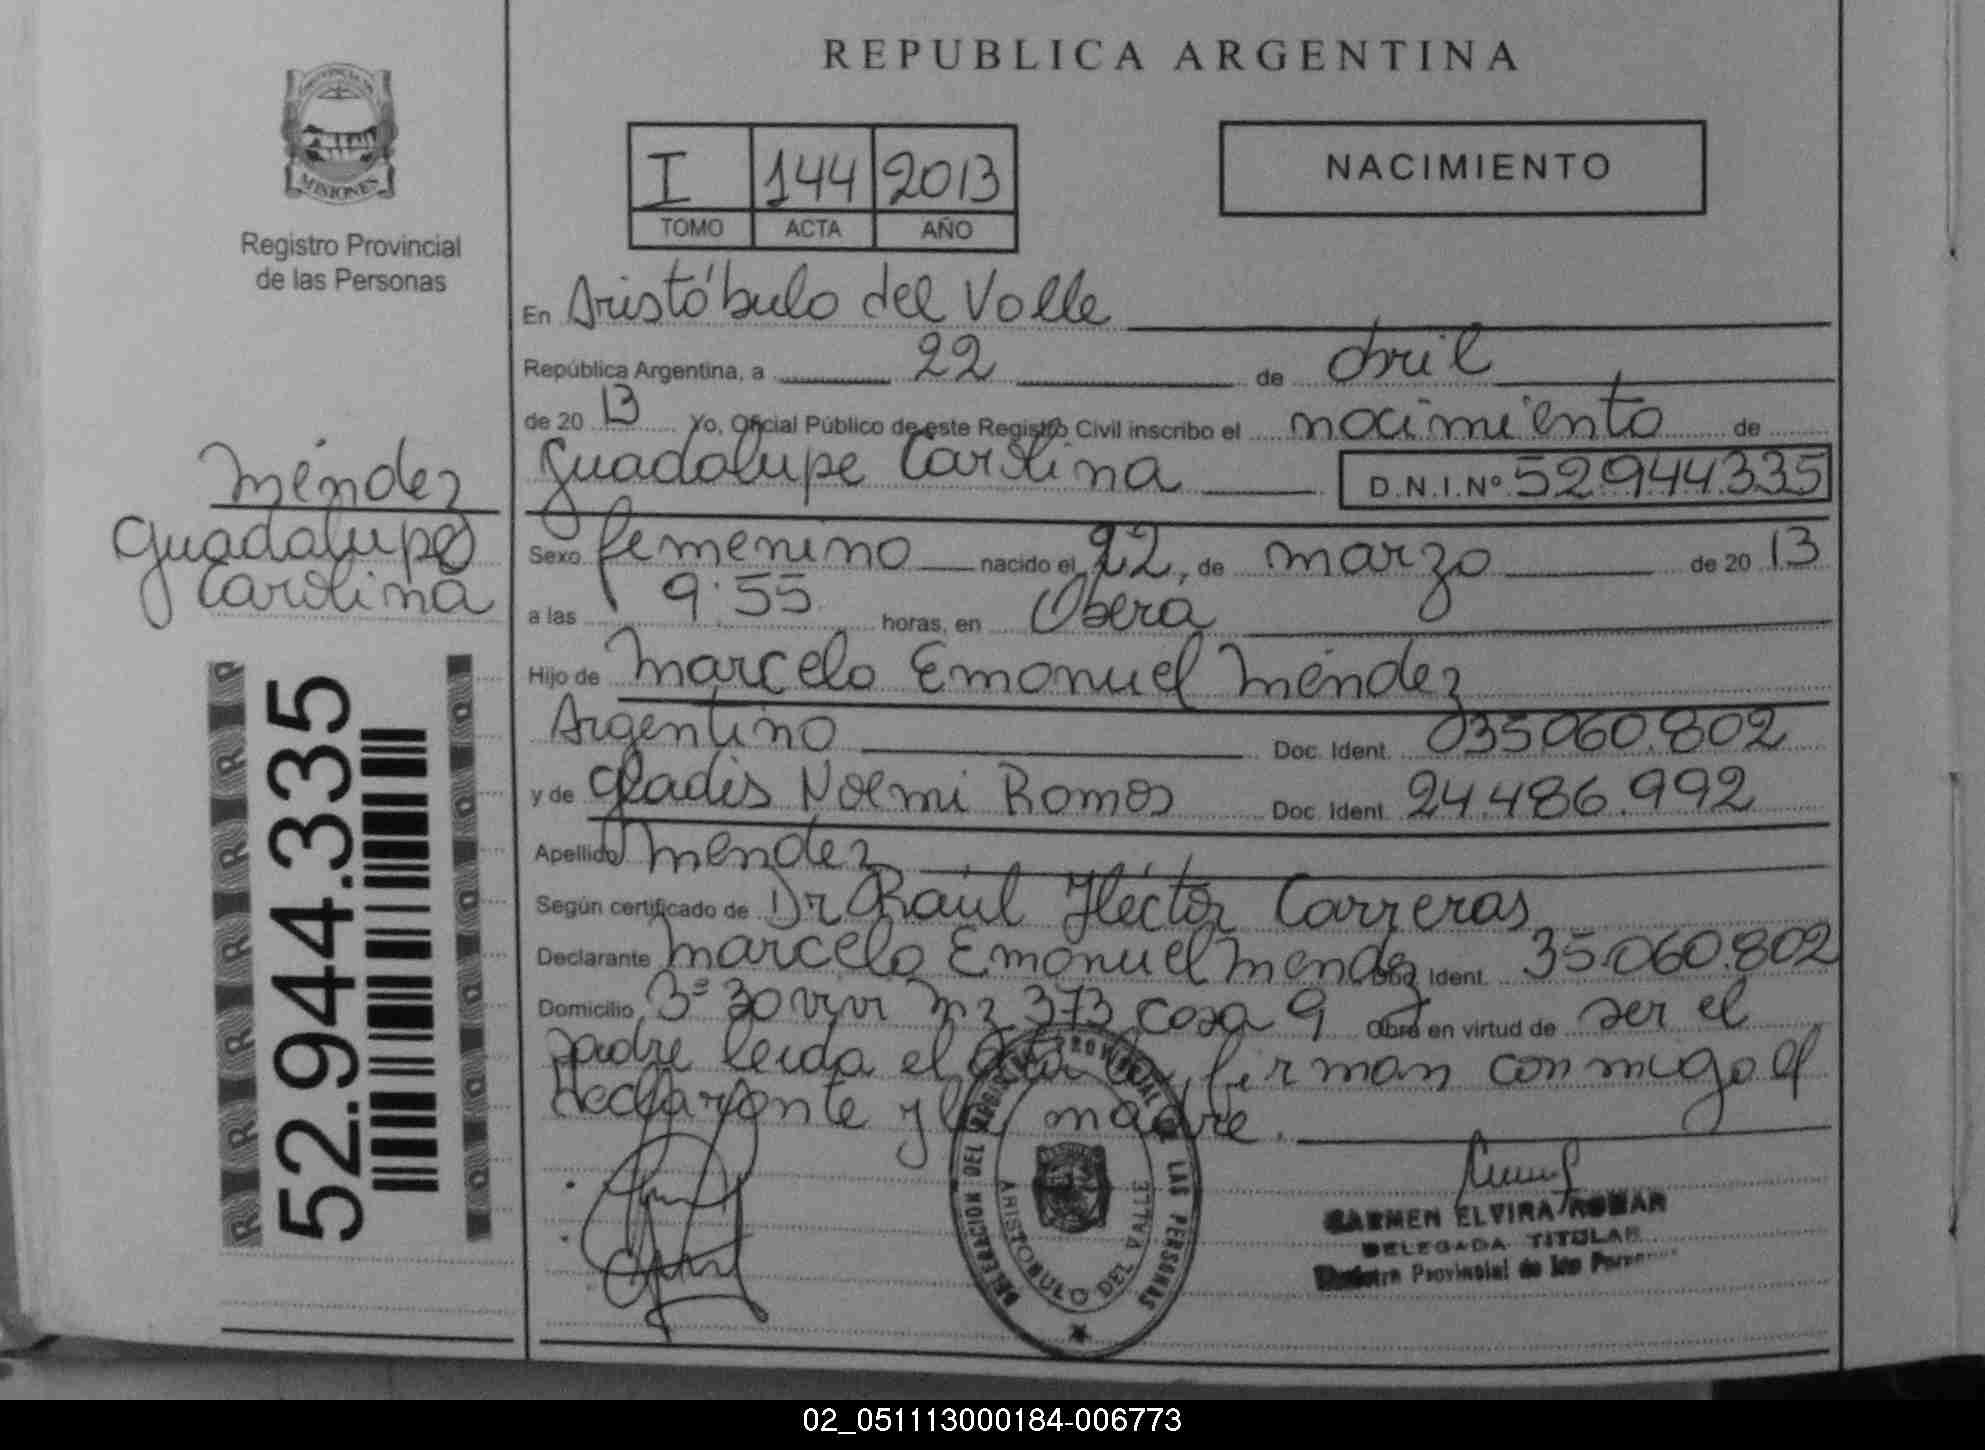 REPUBLICA ARGENTINA
PROVINCIA DE
MISIONES
Registro Provincial
de las Personas
I 144 2013
TOMO ACTA AÑO
NACIMIENTO
En Aristóbulo del Valle
República Argentina, a 22 de abril
de 20 13 Yo, Oficial Público de este Registro Civil inscribo el nacimiento de
Guadalupe Carolina D.N.I.Nº 52944335
Méndez
Guadalupe
Carolina
Sexo femenino nacido el 22, de marzo de 20 13
a las 9:55 horas, en Oberá
Hijo de Marcelo Emanuel Méndez
Argentino Doc. Ident. 035060.802
y de Gladis Noemi Ramos Doc. Ident. 24.486.992
Apellido Méndez
Según certificado de Dr Raúl Héctor Carreras
Declarante Marcelo Emanuel Mendez Doc. Ident. 35.060.802
Domicilio 3º 30 viv mz 373 casa 9 Obra en virtud de ser el
padre leida el acta firman conmigo el
declarante y la madre.
52.944.335
DELEGACION DEL REGISTRO PROVINCIAL DE LAS PERSONAS
ARISTOBULO DEL VALLE
CARMEN ELVIRA ROMAR
DELEGADA TITULAR
Registro Provincial de las Personas
02_051113000184-006773